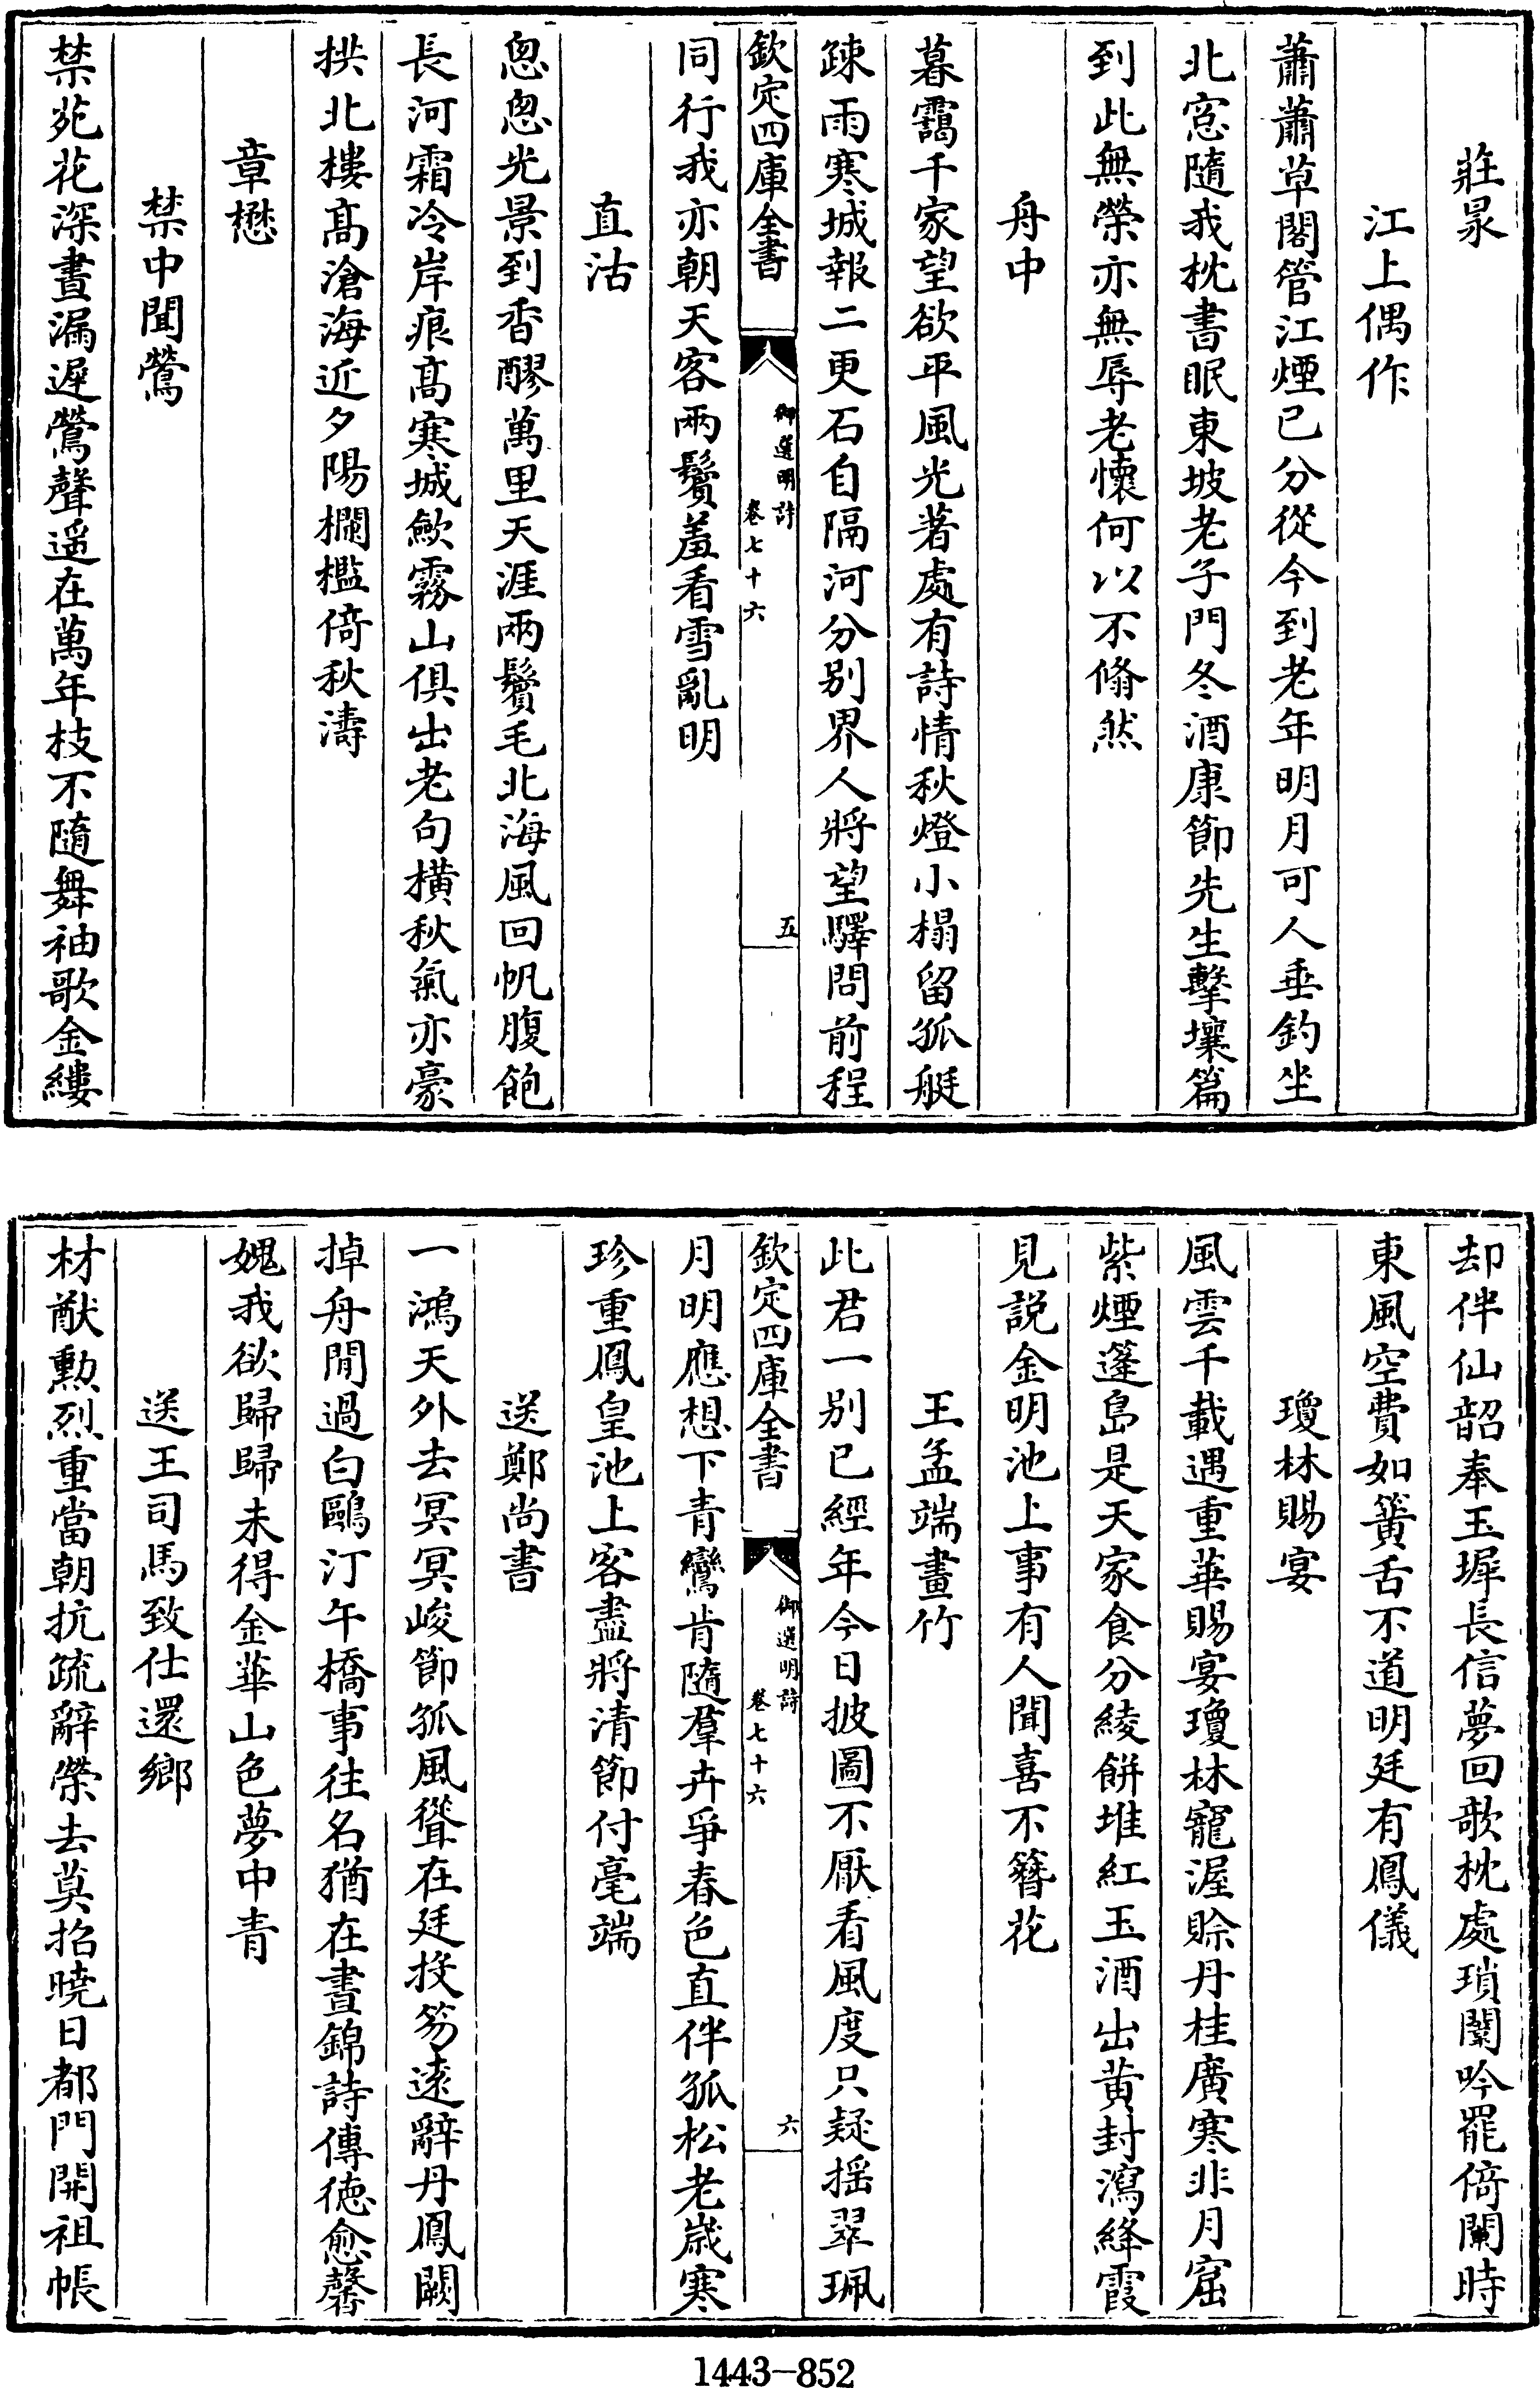 莊㫤
江上偶作
蕭蕭草閣管江煙已分從今到老年明月可人垂釣坐
北窓隨我枕書眠東坡老子門冬酒康節先生擊壤篇
到此無榮亦無辱老懷何以不翛然
舟中
暮靄千家望欲平風光著處有詩情秋燈小榻留孤艇
疎雨寒城報二更石自隔河分別界人將望驛問前程
欽定四庫全書
御選明詩
卷七十六
五
同行我亦朝天客兩鬢羞看雪亂明
直沽
怱怱光景到香醪萬里天涯兩鬢毛北海風回帆腹飽
長河霜冷岸痕髙寒城歛霧山俱出老句橫秋氣亦豪
拱北樓髙滄海近夕陽欄檻倚秋濤
章懋
禁中聞鶯
禁苑花深晝漏遲鶯聲遥在萬年枝不隨舞袖歌金縷
却伴仙韶奉玉墀長信夢回歌枕處瑣闈吟罷倚闌時
東風空費如簧舌不道明廷有鳳儀
瓊林賜宴
風雲千載遇重華賜宴瓊林寵渥賒丹桂廣寒非月窟
紫煙蓬島是天家食分綾餅堆紅玉酒出黄封瀉絳霞
見説金明池上事有人聞喜不簪花
王孟端畫竹
此君一别已經年今日披圖不厭看風度只疑揺翠珮
欽定四庫全書
御選明詩
卷七十六
六
月明應想下青鸞肯隨羣卉爭春色直伴孤松老歲寒
珍重鳳皇池上客盡將清節付毫端
送鄭尚書
一鴻天外去冥冥峻節孤風聳在廷投笏遠辭丹鳳闕
掉舟閒過白鷗汀午橋事往名猶在晝錦詩傳徳愈馨
媿我欲歸歸未得金華山色夢中青
送王司馬致仕還鄉
材猷勲烈重當朝抗疏辭榮去莫招曉日都門開祖帳
1443-852